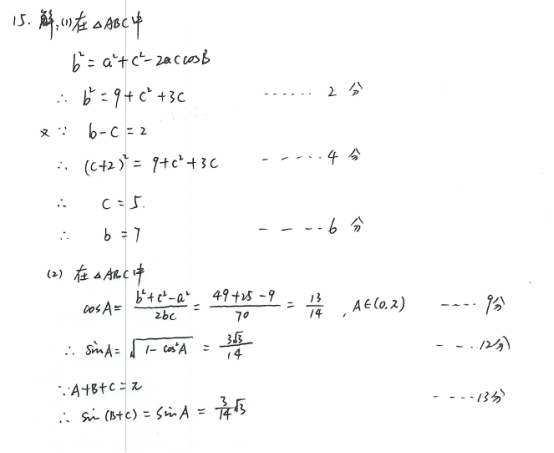 15. 解:(1)在△ABC中
b²=a²+c²-2accosB
∴ b²=9+c²+3c ······ 2分
又∵ b-c=2
∴ (c+2)²=9+c²+3c -----·4分
∴ c=5.
∴ b=7 ----·6分
(2) 在△ABC中
cosA= (b²+c²-a²)/(2bc) = (49+25-9)/70 = 13/14 , A∈(0,π) ----·9分
∴ sinA=√(1-cos²A) = 3√3/14 --··12分
∵A+B+C=π
∴ sin(B+C)=sinA= 3/14 √3 ----·13分